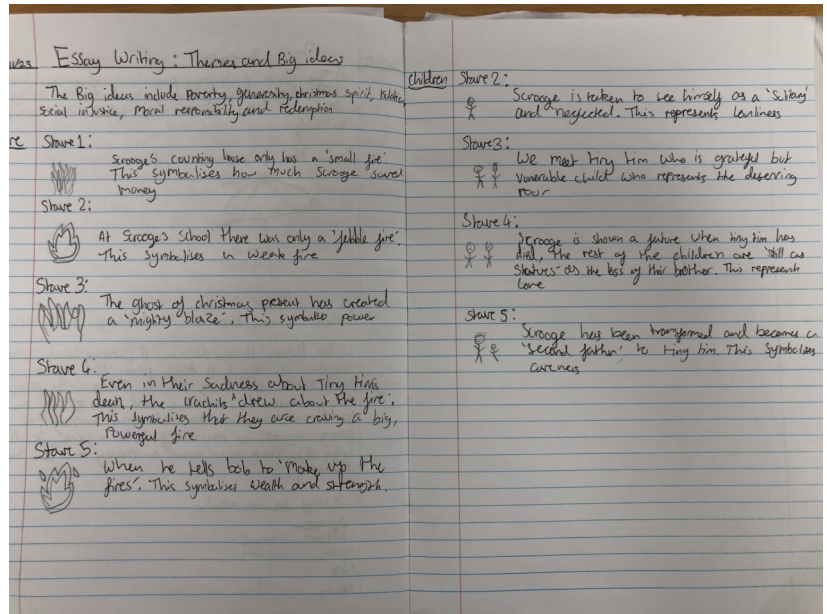 Essay Writing: Themes and Big ideas
The Big ideas include Poverty, generosity, christmas spirit,
Social injustice, Moral responsibility and redemption
Stave 1:
Scrooge's counting house only has a 'small fire'
This symbolises how much Scrooge saved
money
Stave 2:
At Scrooge's School there was only a 'febble fire'.
This symbolises a weak fire
Stave 3:
The ghost of christmas present has created
a 'mighty blaze'. This symbolises power
Stave 4:
Even in their Sadness about Tiny tims
the crachits 'drew about the fire'.
This symbolises that they are craving a big,
Powerful fire
Stave 5:
When he tells bob to 'Make up the
fires'. This symbolises wealth and strength.
Children Stave 2:
Scrooge is taken to see himself as a 'Solitary'
and 'neglected. This represents lonliness
Stave 3:
We meet tiny tim who is grateful but
vunerable child who represents the deserving
Pour
Stave 4:
Scrooge is shown a future when tiny tim has
died, the rest of the children are 'still as
Statues' as the loss of their brother. This represents
Love
Stave 5:
Scrooge has been transformed and becomes a
'second father' to tiny tim. This Symbolises
careness